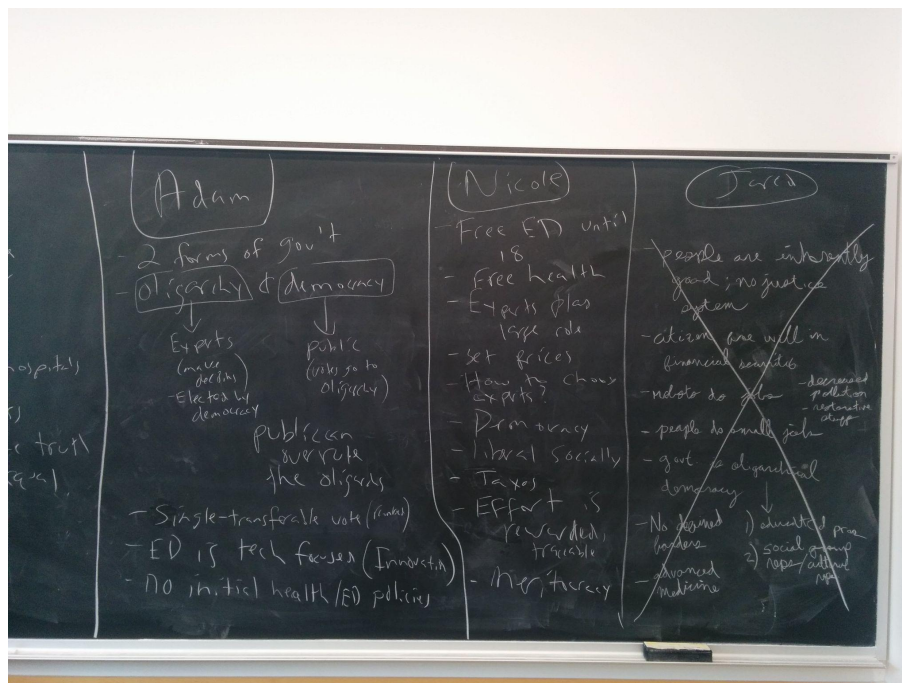 ospitals
truth
Adam
- 2 forms of gov't
- Oligarchy & democracy
Experts
(make
- Elected by
democracy
public
(votes go to
oligarchy)
public can
overrule
the oligarchs
- Single-transferable vote (ranked)
- ED is tech focuses (Innovation)
- no initial health/ED policies
Nicole
- Free ED until
18
- Free health
- Experts play
large role
- Set prices
- How to choose
experts?
- Democracy
- liberal socially
- Taxes
- Effort is
rewarded,
traceable
- Meritocracy
Jared
- people are inherantly
good; no justice
system
- citizen are well in
financial
- robots do jobs
- decreased
pollution
- restorative
- people do small jobs
- govt. is oligarchical
democracy
- No defined
borders
1) educated
2) social group
reps/cultural
reps
- advanced
medicine